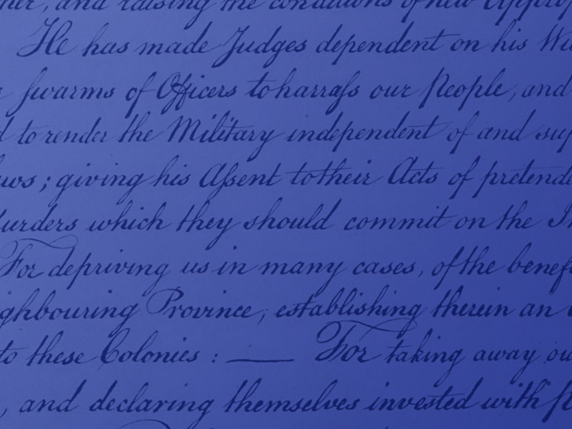 and raising the conditions of new
He has made Judges dependent on his
swarms of Officers to harrass our People, and
to render the Military independent of and
; giving his Assent to their Acts of
which they should commit on the
For depriving us in many cases, of the
Province, establishing therein an
to these Colonies : — For taking away
, and declaring themselves invested with